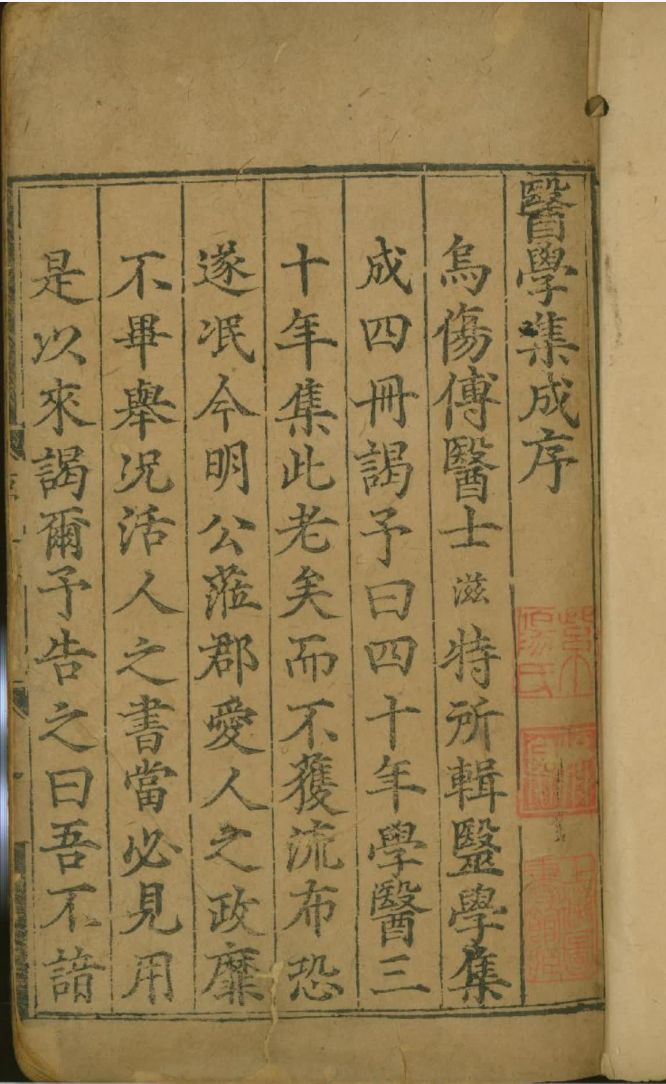 醫學集成序
烏傷傅醫士滋特所輯醫學集
成四冊謁予曰四十年學醫三
十年集此老矣而不獲流布恐
遂泯今明公蒞郡愛人之政靡
不畢舉况活人之書當必見用
是以來謁爾予告之曰吾不諳